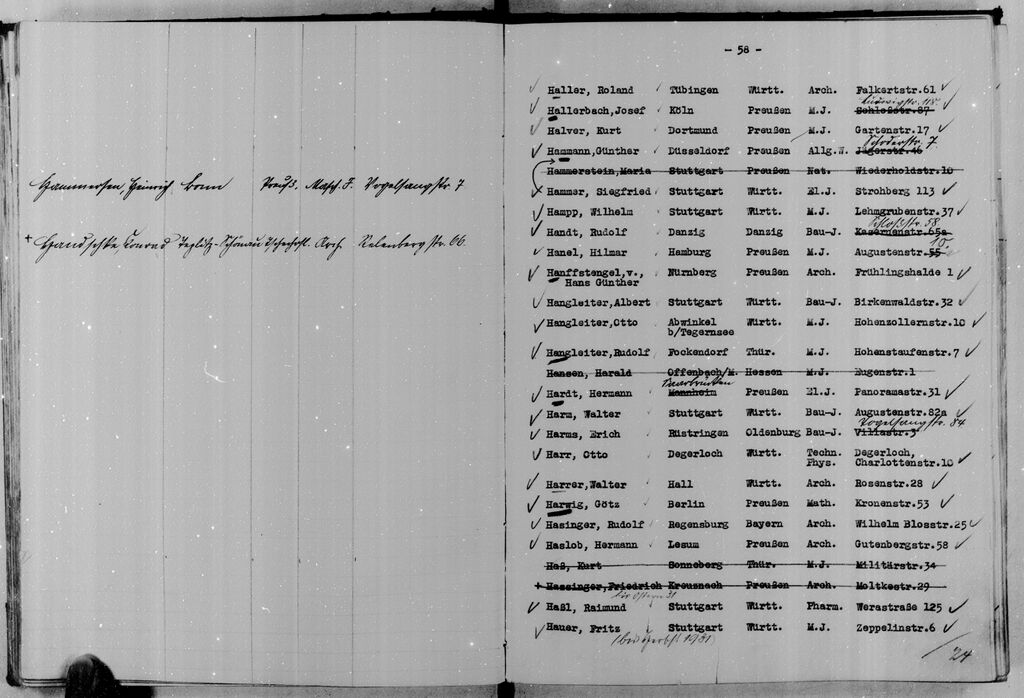 Hammersen, Heinrich Bonn Preuß. Masch. J. Vogelsangstr. 7
+ Handschke, Konrad Teplitz-Schönau Tschechosl. Arch. Relenbergstr. 66.
- 58 -
Haller, Roland Tübingen Württ. Arch. Falkertstr.61
Ludwigstr. 118
Hallerbach,Josef Köln Preußen M.J. Schloßstr.87
Halver, Kurt Dortmund Preußen M.J. Gartenstr.17
Schoderstr. 7
Hammann,Günther Düsseldorf Preußen Allg.W. Jägerstr.46
Hammerstein,Maria Stuttgart Preußen Nat. Wiederholdstr.10
Hammer, Siegfried Stuttgart Württ. El.J. Strohberg 113
Hampp, Wilhelm Stuttgart Württ. M.J. Lehmgrubenstr.37
Schloßstr. 58
Handt, Rudolf Danzig Danzig Bau-J. Kasernenstr.65a
10
Hanel, Hilmar Hamburg Preußen M.J. Augustenstr.55
Hanffstengel,v., Nürnberg Preußen Arch. Frühlingshalde 1
Hans Günther
Hangleiter,Albert Stuttgart Württ. Bau-J. Birkenwaldstr.32
Hangleiter,Otto Abwinkel Württ. M.J. Hohenzollernstr.10
b/Tegernsee
Hangleiter,Rudolf Fockendorf Thür. M.J. Hohenstaufenstr.7
Hansen, Harald Offenbach/M. Hessen M.J. Eugenstr.1
Saarbrücken
Hardt, Hermann Mannheim Preußen El.J. Panoramastr.31
Harm, Walter Stuttgart Württ. Bau-J. Augustenstr.82a
Vogelsangstr. 84
Harms, Erich Rüstringen Oldenburg Bau-J. Villastr.3
Harr, Otto Degerloch Württ. Techn. Degerloch,
Phys. Charlottenstr.10
Harrer,Walter Hall Württ. Arch. Rosenstr.28
Harwig, Götz Berlin Preußen Math. Kronenstr.53
Hasinger, Rudolf Regensburg Bayern Arch. Wilhelm Blosstr.25
Haslob, Hermann Lesum Preußen Arch. Gutenbergstr.58
Haß, Kurt Sonneberg Thür. M.J. Militärstr.34
+ Hassinger,Friedrich Kreuznach Preußen Arch. Moltkestr.29
bis Ostern 31
Haßl, Raimund Stuttgart Württ. Pharm. Werastraße 125
Hauer, Fritz Stuttgart Württ. M.J. Zeppelinstr.6
(bis Herbst 1931)
/24